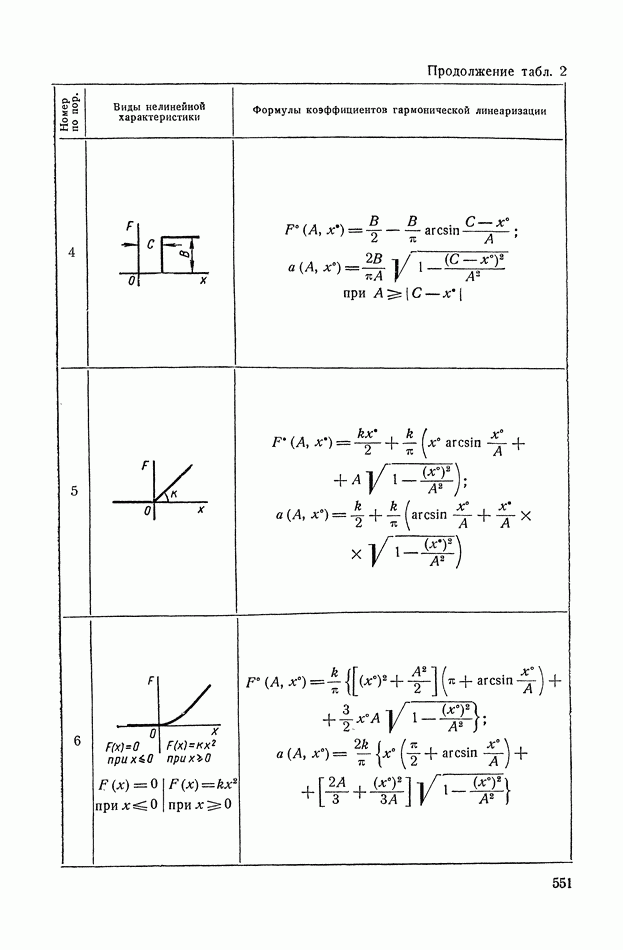 Продолжение табл. 2
Номер по пор.
Виды нелинейной характеристики
Формулы коэффициентов гармонической линеаризации
4
F C B 0 x
F° (A, x°) = B/2 — B/π arcsin (C — x°)/A ;
a (A, x°) = 2B/(πA) √(1 — (C — x°)²/A²)
при A ⩾ | C — x° |
5
F K 0 x
F° (A, x°) = kx°/2 + k/π (x° arcsin x°/A +
+ A √(1 — (x°)²/A²));
a (A, x°) = k/2 + k/π (arcsin x°/A + x°/A ×
× √(1 — (x°)²/A²))
6
F 0 x
F(x)=0 F(x)=кx²
при x⩽0 при x⩾0
F (x) = 0 F (x) = kx²
при x ⩽ 0 при x ⩾ 0
F° (A, x°) = k/π {[(x°)² + A²/2] (π + arcsin x°/A) +
+ 3/2 x°A √(1 — (x°)²/A²)};
a (A, x°) = 2k/π {x° (π/2 + arcsin x°/A) +
+ [2A/3 + (x°)²/3A] √(1 — (x°)²/A²)}
551